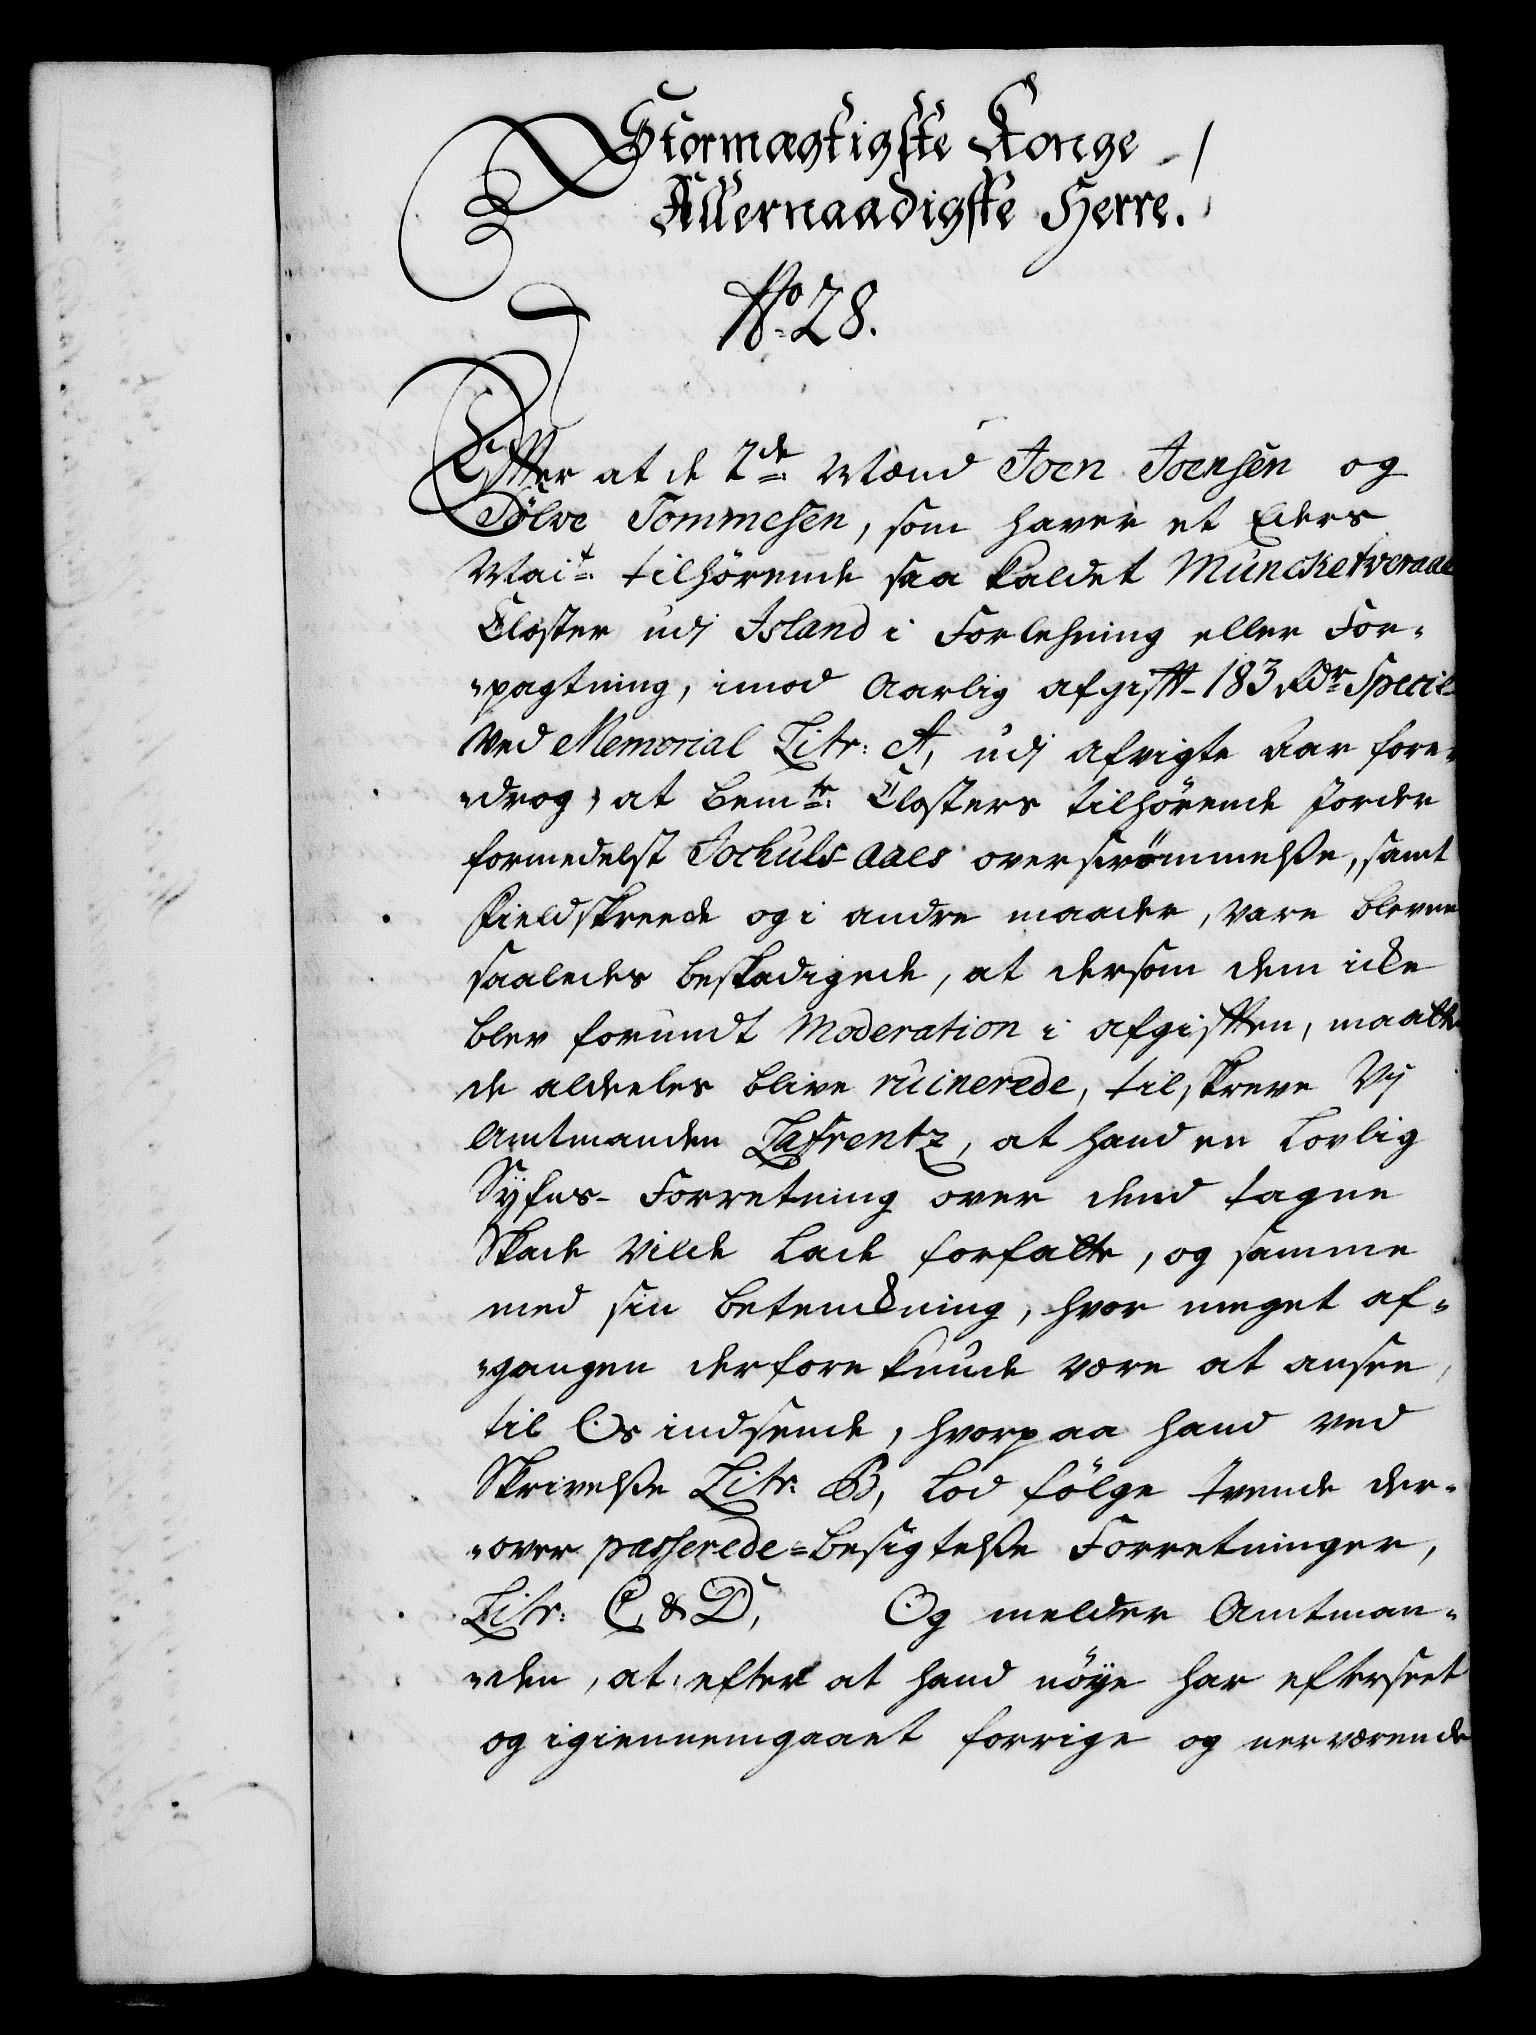 Stormægtigste Konge
Allernaadigste Herre.
No. 28.
Efter at de 2de Mænd Joen Joensen og
Sölve Tommesen, som haver et Eders
Mait. tilhörende saa kaldet Muncketveraae
Closter udj Island i Forlehning eller For-
-pagtning, imod Aarlig afgifft 183 Rdr. Specie
ved Memorial Litr: A, udj afvigte Aar fore-
-drog, at bemte. Closters tilhörende Jorder
formedelst Jockuls Aaes overströmmelße, samt
Fieldskreede og i andre maader, vare blevne
saaledes beskadigede, at dersom dem icke
blev forundt Moderation i afgifften, maatte
de aldeeles blive ruinerede, tilskreve Vj
Amtmanden Lafrentz, at hand en Lovlig
Syhns-Forretning over dend tagne
Skade vilde lade forfatte, og samme
med sin betenckning, hvor meget af-
-gangen derfore kunde være at ansee,
til Os indsende, hvorpaa hand ved
Skrivelße Litr. B, lod fölge tvende der-
-over passerede-besigtelße Forretninger,
Litr: C, & D, Og melder Amtman-
-den, at efter at hand nöye har efterseet
og igiennemgaaet forrige og nerværende